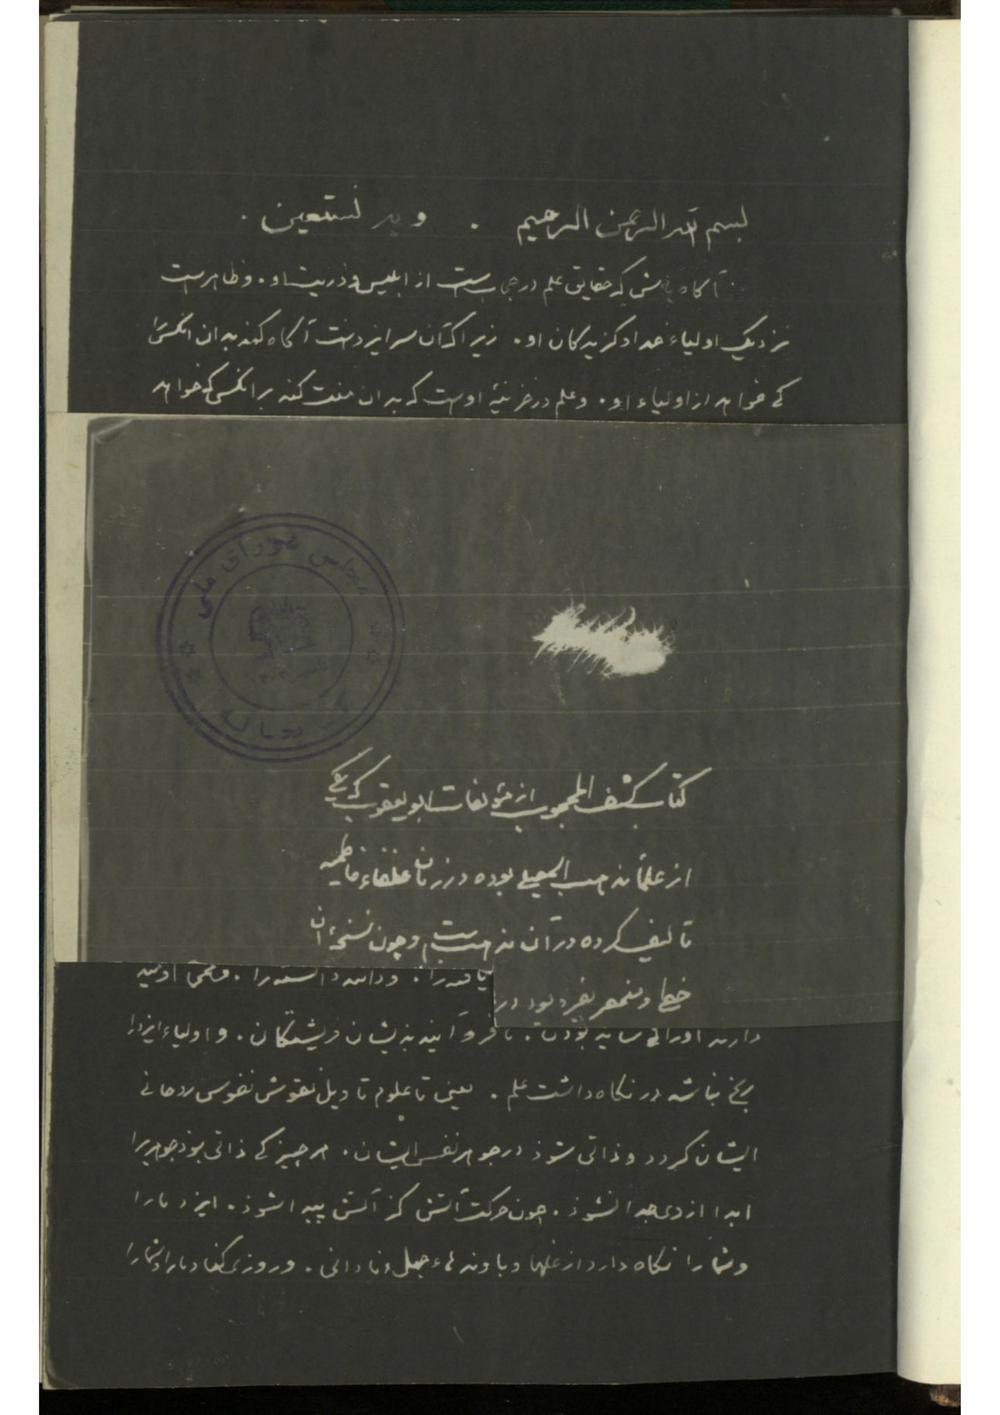 بسم الله الرحمن الرحیم . و به نستعین .
آکاه باش که حقایق علم در حجاب است از ابلیس و ذریت او . و ظاهر است
نزدیک اولیاء خدا و کزیدکان او . زیرا که آن سر ایزدست آکاه کند بدان انکس را
که خواهد از اولیاء او . و علم در خزینهٔ اوست که بدان منت کند بر انکس که خواهد
مجلس شورای ملی
کتابخانه
کتاب کشف المحجوب از مؤلفات ابو یعقوب که یکی
از علماء مذهب اسمعیلی بوده در زمان خلفاء فاطمیه
تالیف کرده در آن مذهب است و چون نسخهٔ آن
خطی و منحصر بفرد بود در
یافته را . و داننده دانسته را .
دارند او را بی سایه بودن . تا فرو آیند بذیشان فریشتکان . و اولیاء ایزد را
رنج نباشد در نکاه داشت علم . یعنی تا علوم تاویل نقوش نفوس روحانی
ایشان کردد و ذاتی شوذ در جوهر نفس ایشان . هر چیز کی ذاتی بوذ جوهر را
ابدا از وی جدا نشوذ . چون حرکت آتش کز آتش پیدا شوذ . ایزد ما را
و شما را نکاه دارد از غلها و با وندهاء جهل و نادانی . و روزی کناد ما را و شما را